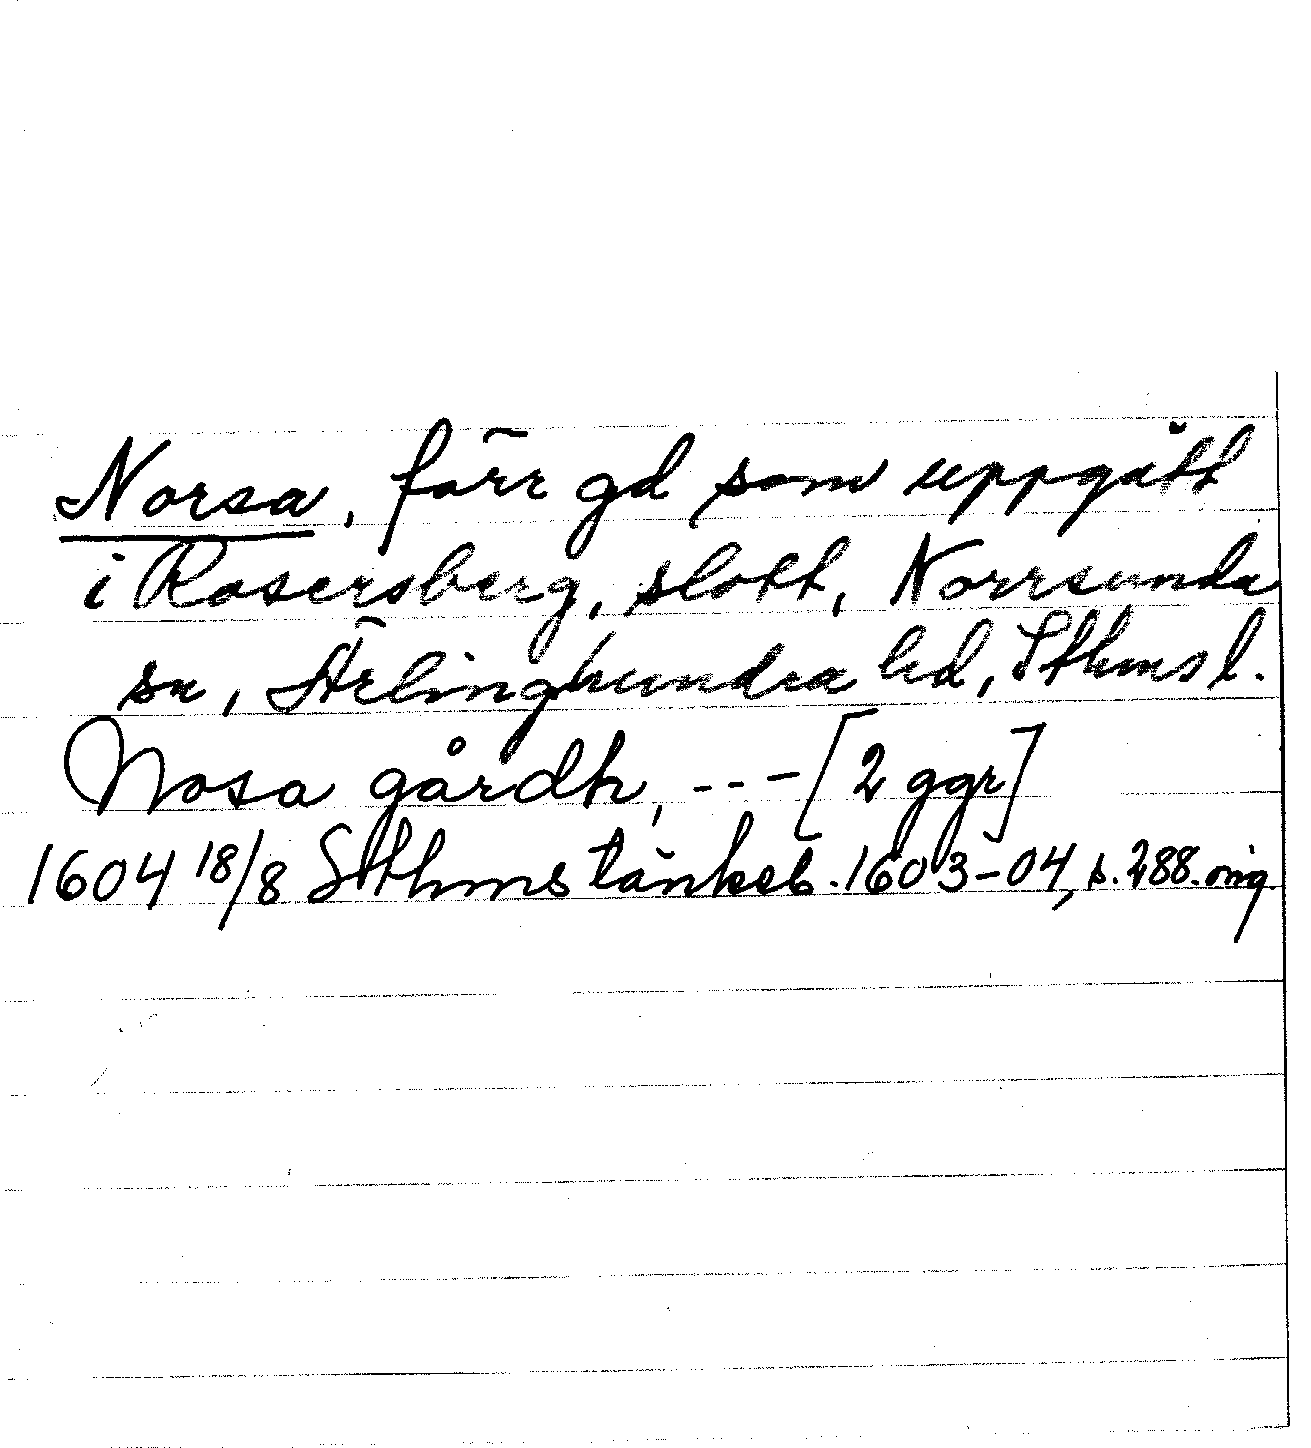 Norsa, förr gd som uppgått
i Rosersberg, slott, Norrsunda
sn, Ärlinghundra hd, Sthms l.
Nosa gårdh, --- [2 ggr]
1604 18/8 Sthms tänkeb. 1603-04, s. 288. orig.